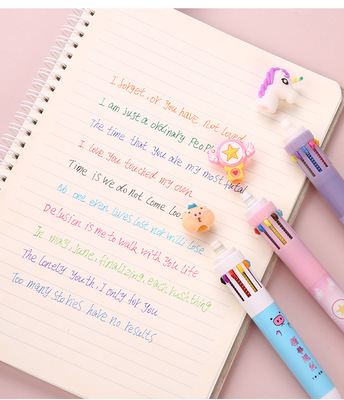 I forget, or you have not loved
I am just a ordinary People
The time that you are my most fatal
I love you touched my own
Time is we do not come loo
No one even cares lose not will lose
Delusion is me to walk with you life
In may, June, finalizing, each, rush thing
The lonely youth, I only for you
Too many stories have no results